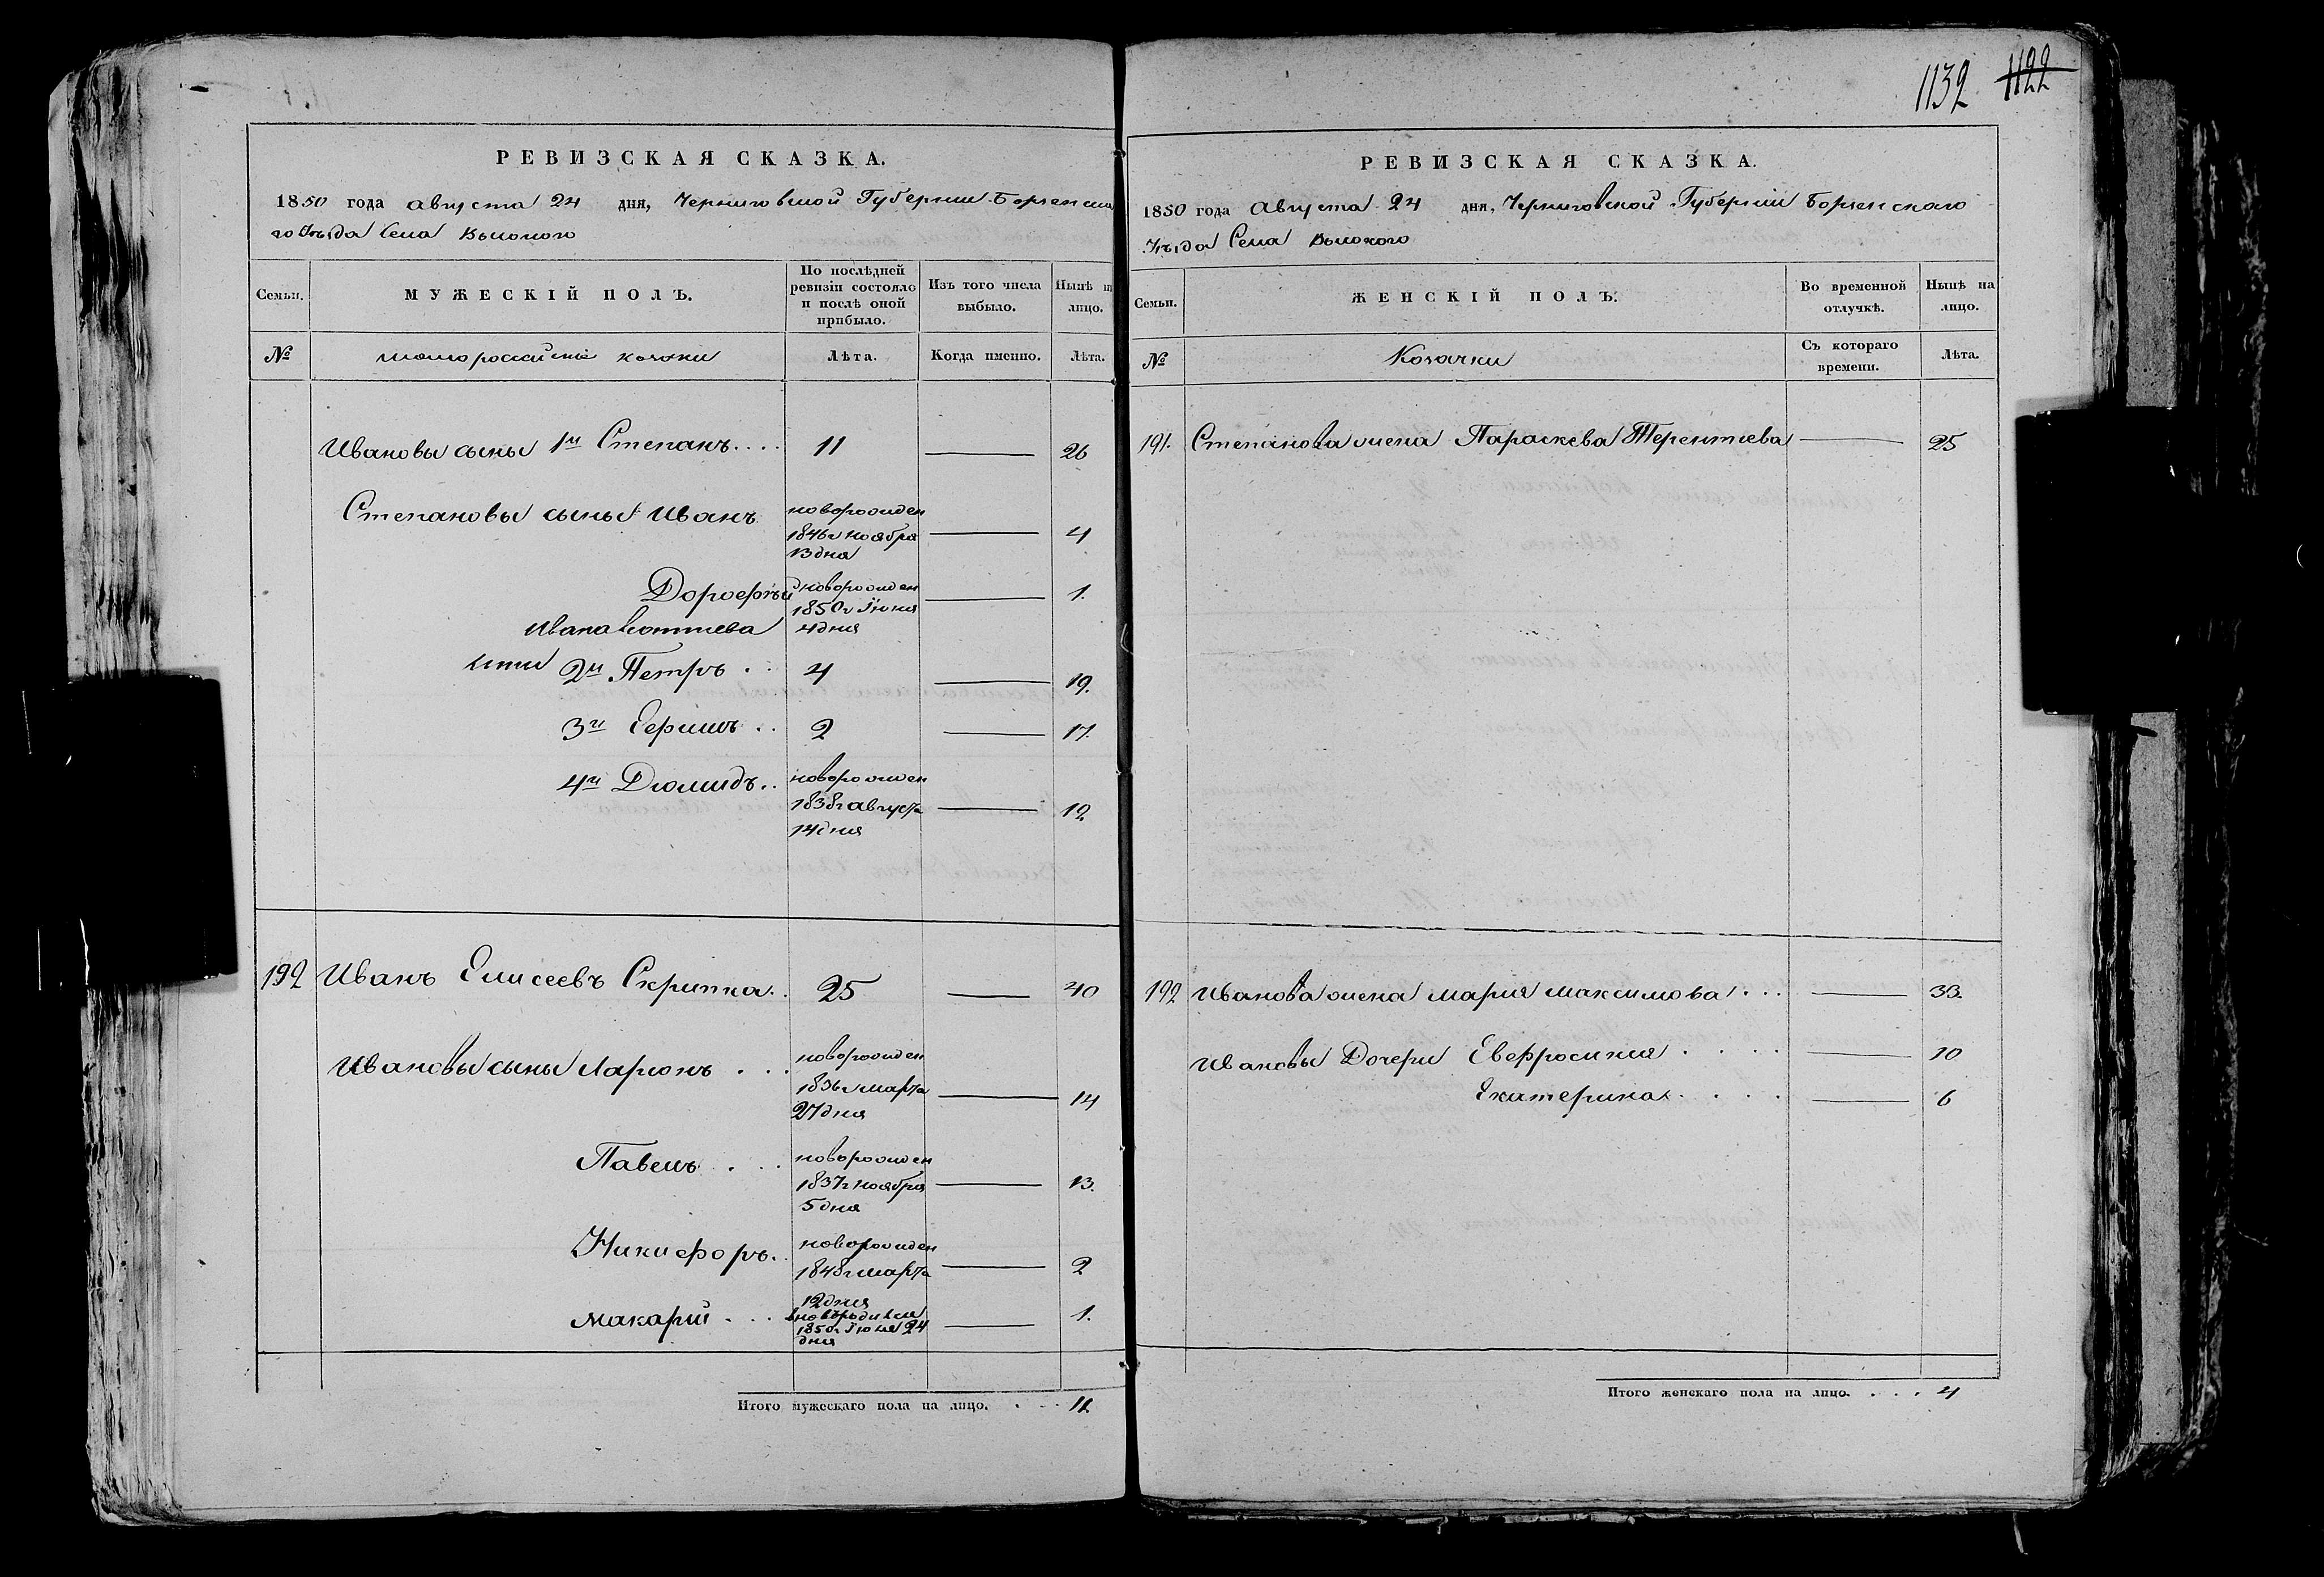 1132 1122
РЕВИЗСКАЯ СКАЗКА.
1850 года августа 24 дня, Черниговской Губернии Борзенска
го Уѣзда Села Высокого
Семьи. МУЖЕСКІЙ ПОЛЪ. По послѣдней ревизіи состояло и послѣ оной прибыло. Изъ того числа выбыло. Нынѣ на лицо.
№ малороссійскіе козаки Лѣта. Когда именно. Лѣта.
Ивановы сыны 1й Степанъ.... 11 26
Степановы сыны Иванъ новорожден 1846г ноября 13 дня 4
Дорофѣй новорожден 1850г Іюня 4 дня 1.
Ивана
2й Петръ . . 4 19.
3й .. 2 17.
4й Дiомидъ.. новорожден 1838г августа 14 дня 12
192 Иванъ Елисеевъ Скрипка.. 25 40
Ивановы сыны Ларионъ . . . новорожден 1836г марта 27 дня 14
Павелъ . . . новорожден 1837г ноября 5 дня 13.
Никифоръ.. новорожден 1848г марта 12 дня 2
Макарий . . . 1850г Іюня 24 дня 1.
Итого мужескаго пола на лицо. . . . 11
РЕВИЗСКАЯ СКАЗКА.
1850 года Августа 24 дня, Черниговской Губерніи Борзенскаго
Уѣзда Села Высокого
Семьи. ЖЕНСКІЙ ПОЛЪ. Во временной отлучкѣ. Нынѣ на лицо.
№ Козачки Съ котораго времени. Лѣта.
191. Степанова жена Параскева Терентиева 25
192 Иванова жена Мария Максимова . . . 33.
Ивановы Дочери Евфросиния . . . . 10
Екатерина . . . . 6
Итого женскаго пола на лицо. . . . 4